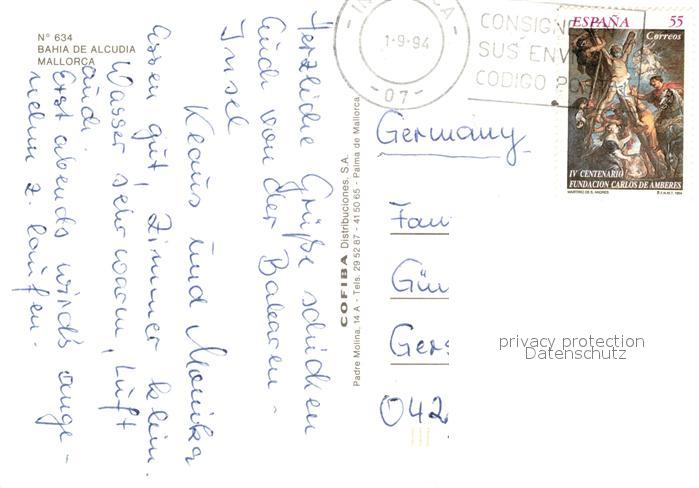 Nº 634
BAHIA DE ALCUDIA
MALLORCA
Herzliche Grüße schicken
Euch von der Balearen-
Insel
Klaus und Monika
Essen gut, Zimmer klein.
Wasser sehr warm, Luft
auch.
Erst abends wird's ange-
nehm z. laufen.
COFIBA Distribuciones, S.A.
Padre Molina, 14 A - Tels. 29 52 87 - 41 50 65 - Palma de Mallorca
1-9-94
-07-
CONSIGN
SUS ENV
CODIGO POS
ESPAÑA 55
Correos
IV CENTENARIO
FUNDACION CARLOS DE AMBERES
MARTIRIO DE S. ANDRES
Germany
Fam
Gün
Gers
042
privacy protection
Datenschutz